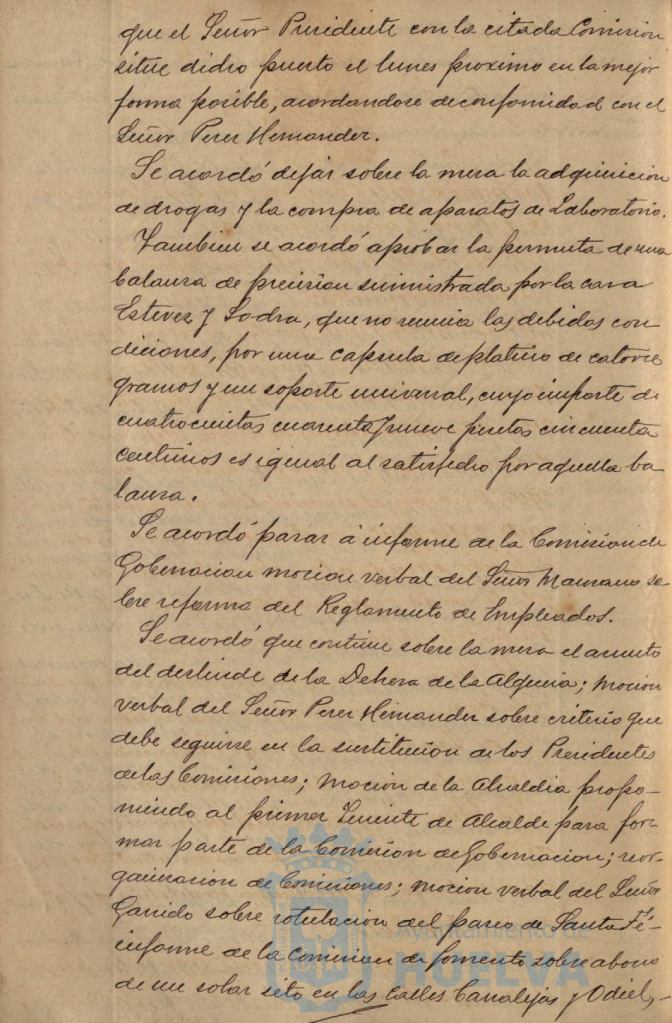 que el Señor Presidente con la citada Comisión
situe dicho puerto el lunes proximo en la mejor
forma posible, acordandose de conformidad con el
Señor Perez Hernandez.
Se acordó dejar sobre la mesa la adquisicion
de drogas y la compra de aparatos de Laboratorio.
Tambien se acordó aprobar la permuta de una
balanza de precision suministrada por la casa
Estevez y Jodra, que no reunia las debidas con
diciones, por una capsula de platino de catorce
gramos y un soporte universal, cuyo importe de
cuatrocientas cuarenta y nueve pesetas cincuenta
centimos es igual al satisfecho por aquella ba
lanza.
Se acordó pasar á informe de la Comision de
Gobernacion mocion verbal del Señor Manzano so
bre reforma del Reglamento de Empleados.
Se acordó que continue sobre la mesa el asunto
del deslinde de la Dehesa de la Alqueria; mocion
verbal del Señor Perez Hernandez sobre criterio que
debe seguirse en la sustitucion de los Presidentes
de las Comisiones; mocion de la Alcaldia propo-
niendo al primer Teniente de Alcalde para for-
mar parte de la Comision de Gobernacion; reor-
ganizacion de Comisiones; mocion verbal del Señor
Garrido sobre rotulacion del paseo de Santa Fé-
informe de la Comision de fomento sobre abono
de un solar sito en las calles Canalejas y Odiel,-
Ayuntamiento de
HUELVA